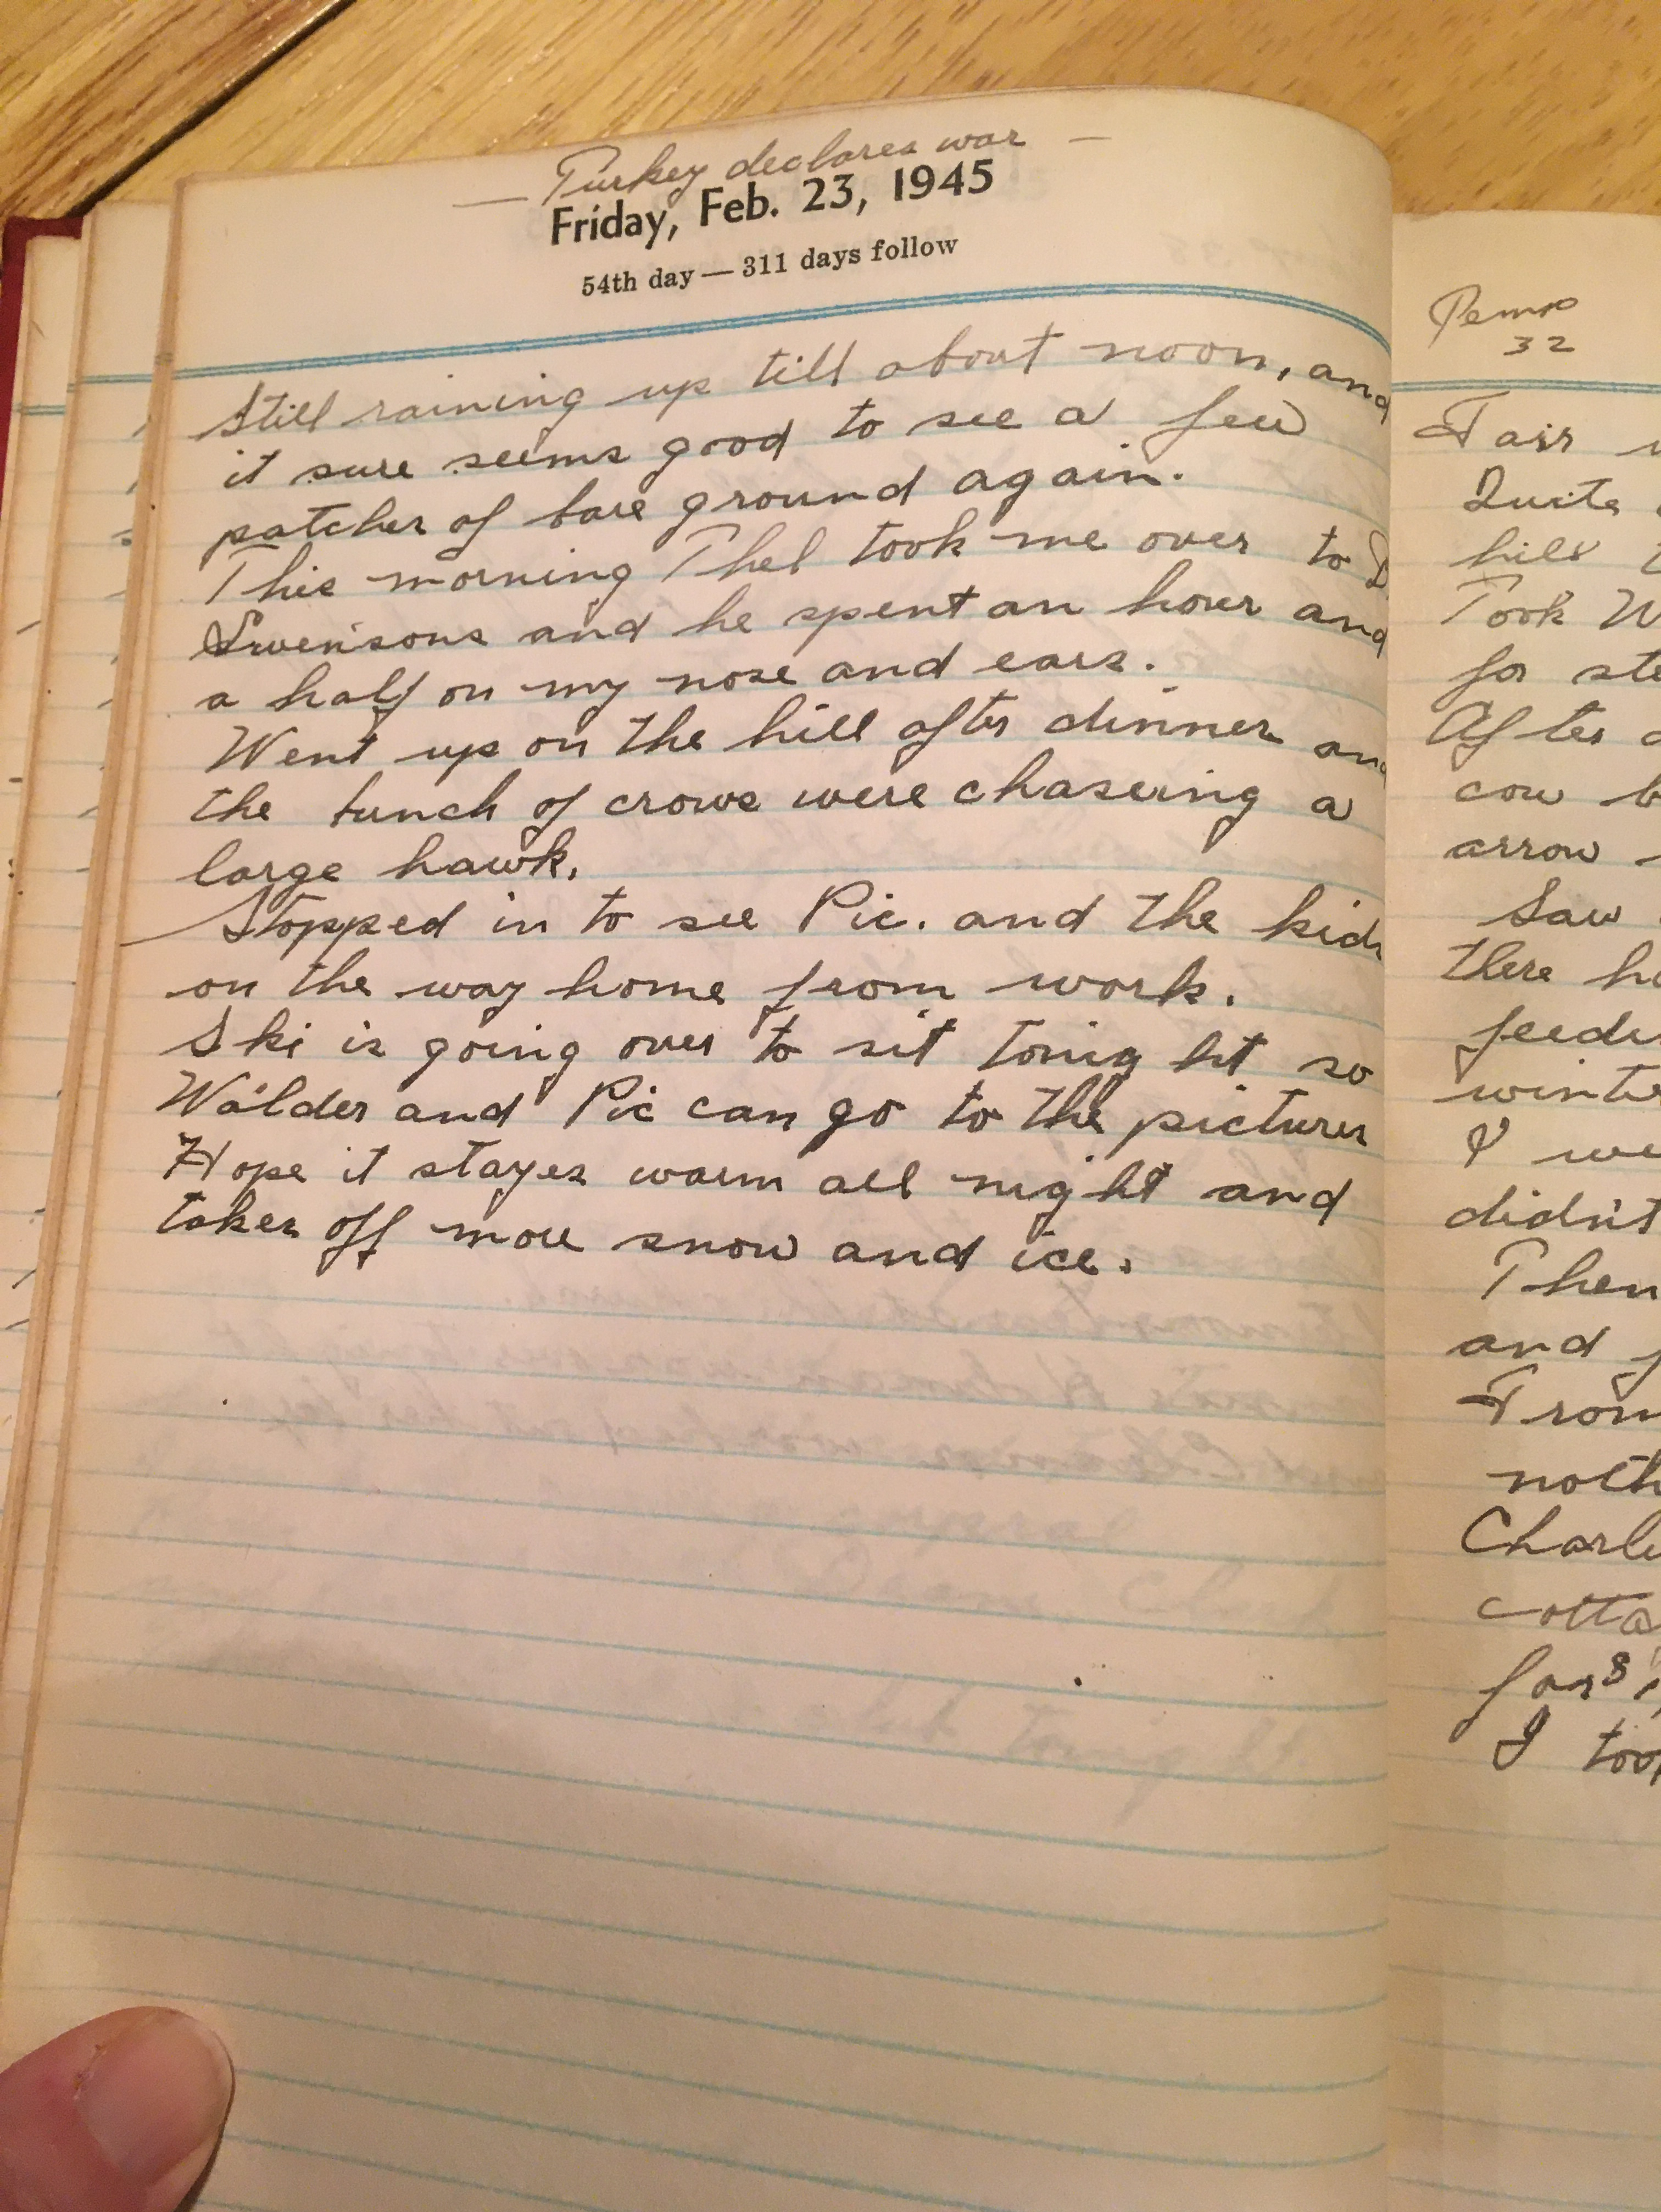 — Turkey declares war —
Friday, Feb. 23, 1945
54th day — 311 days follow
Still raining up till about noon, and
it sure seems good to see a few
patches of bare ground again.
This morning Thel took me over to D
Swensons and he spent an hour and
a half on my nose and ears.
Went up on the hill after dinner and
the bunch of crows were chasering a
large hawk.
Stopped in to see Pic. and the kids
on the way home from work.
Ski is going over to sit tonight so
Walder and Pic can go to the pictures
Hope it stayes warm all night and
takes off more snow and ice.
Temp
32
Fair
Quite
hill
Took W
for ste
After
cow b
arrow
Saw
there ha
feedi
winte
I we
didn't
Then
and
From
noth
Charli
cotta
for
I too